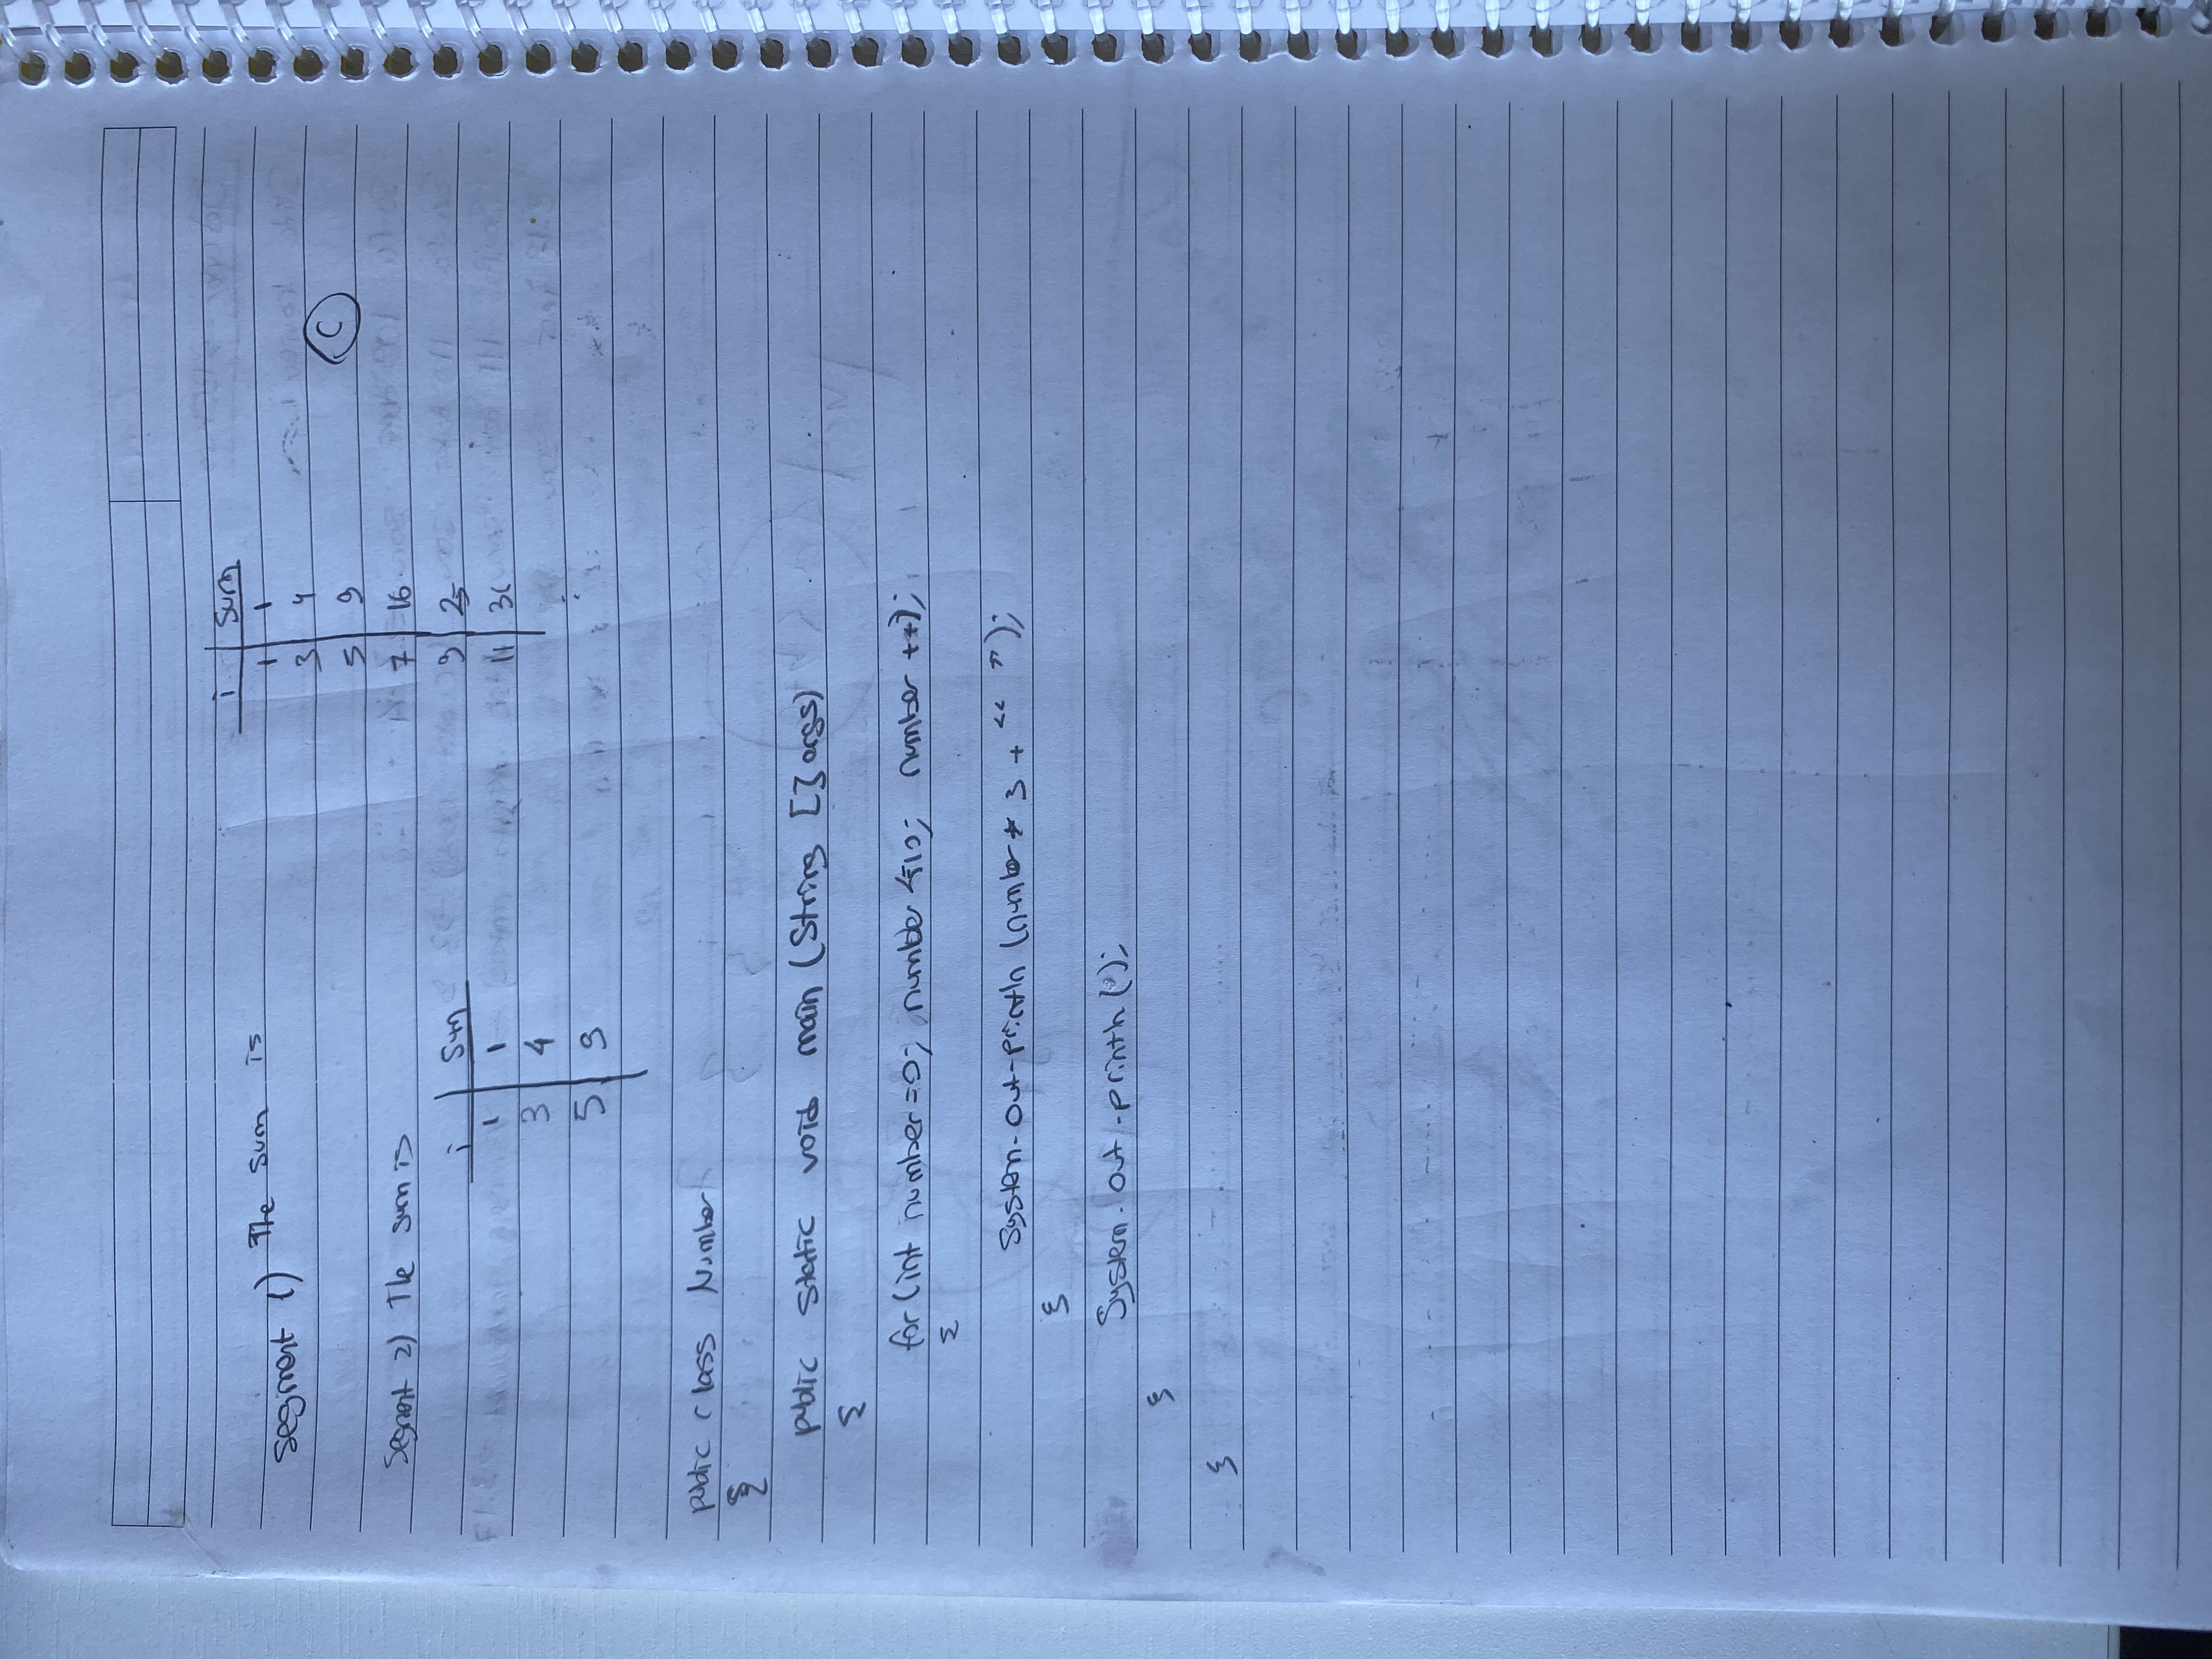 segment 1) The sum is
i | sum
1 | 1
3 | 4
5 | 9
7 | 16
9 | 25
11 | 36
C
Segment 2) The sum is
i | Sum
1 | 1
3 | 4
5 | 9
public class Number
{
public static void main (String [] args)
{
for (int number = 0; number <=10; number ++);
{
System.out.println (number * 3 + “ ”);
}
System.out.println ();
}
}